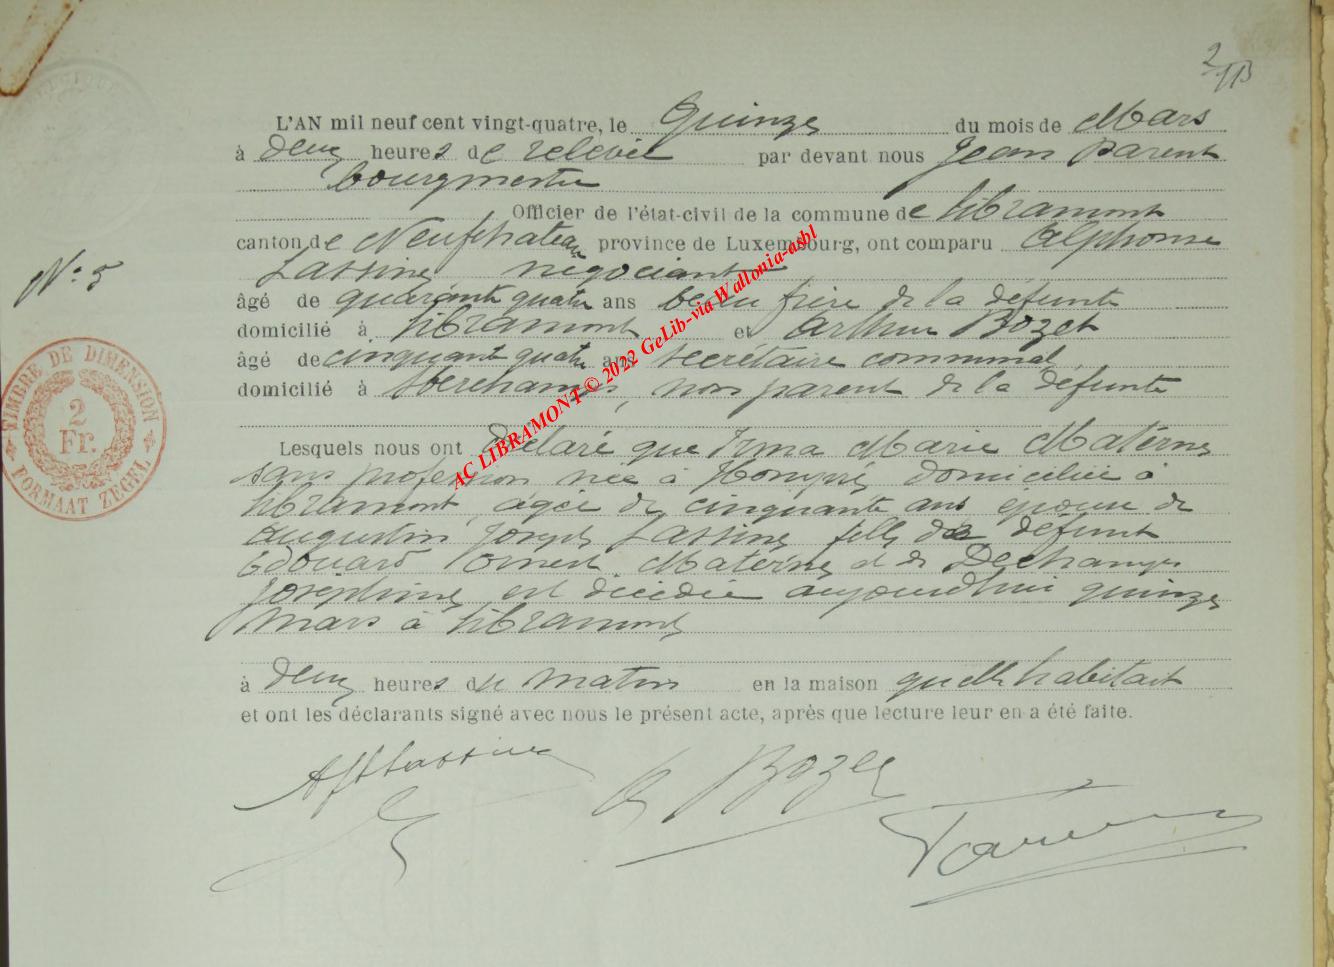 2/113
L'AN mil neuf cent vingt-quatre, le Quinze du mois de Mars
à deux heures de relevée par devant nous Jean Parent
bourgmestre
Officier de l'état-civil de la commune de Libramont
canton de Neufchateau province de Luxembourg, ont comparu Alphonse
Lassine négociant
N° 5
âgé de quarante quatre ans beau frère de la défunte
domicilié à Libramont et Arthur Bozet
âgé de cinquante quatre ans secrétaire communal
domicilié à Sberchamps, non parent de la défunte
Lesquels nous ont déclaré que Irma Marie Materne
sans profession née à Hompré domiciliée à
Libramont, agée de cinquante ans épouse de
Augustin Joseph Lassine fille de défunt
Edouard Ernest Materne et de Dechamps
Joséphine, est décédée aujourd'hui quinze
mars à Libramont
à deux heures du matin en la maison qu'elle habitait
et ont les déclarants signé avec nous le présent acte, après que lecture leur en a été faite.
Lassine Bozet
Parent
TIMBRE DE DIMENSION
2
Fr.
FORMAAT ZEGEL
AC LIBRAMONT © 2022 GeLib-via Wallonia-asbl